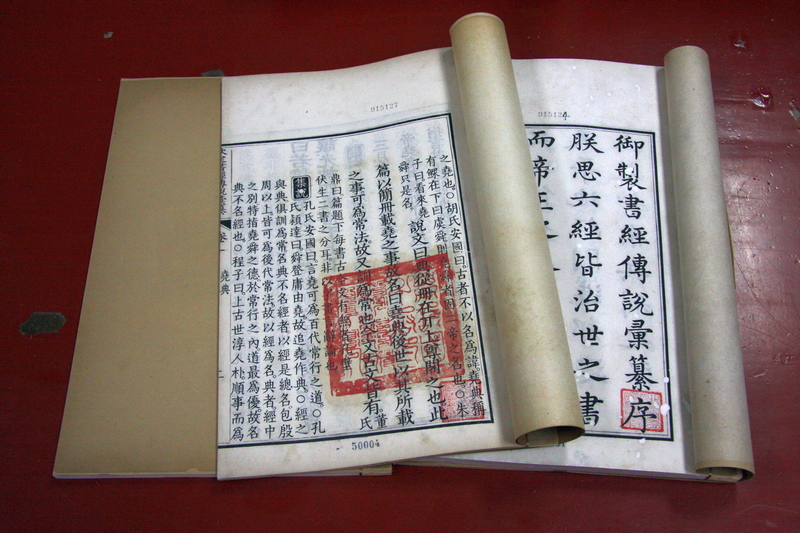 915124
御製書經傳說彙纂序
朕思六經皆治世之書
而帝王
915127
之堯也○胡氏安國曰古者不以名為諱堯典稱
有鰥在下曰虞舜則
者固二帝之名也○朱
子曰看來堯
舜只是名
說文曰典從冊在丌上尊閣之也此
篇以簡冊載堯之事故名曰堯典後世以其所載
之事可為常法故又訓為常也今文古文皆有
董
氏
鼎曰篇題下每書古今文有無者
伏生二書之分耳非
集說
孔氏安國曰言堯可為百代常行之道○孔
氏穎達曰舜登庸由堯故追堯作典○經之
與典俱訓為常名典不名經者以經是總名包殷
周以上皆可為後代常法故以經為名典者經中
之別特指堯舜之德於常行之內道最為優故名
典不名經也○程子曰上古世淳人朴順事而為
卷一
堯典
二
50004